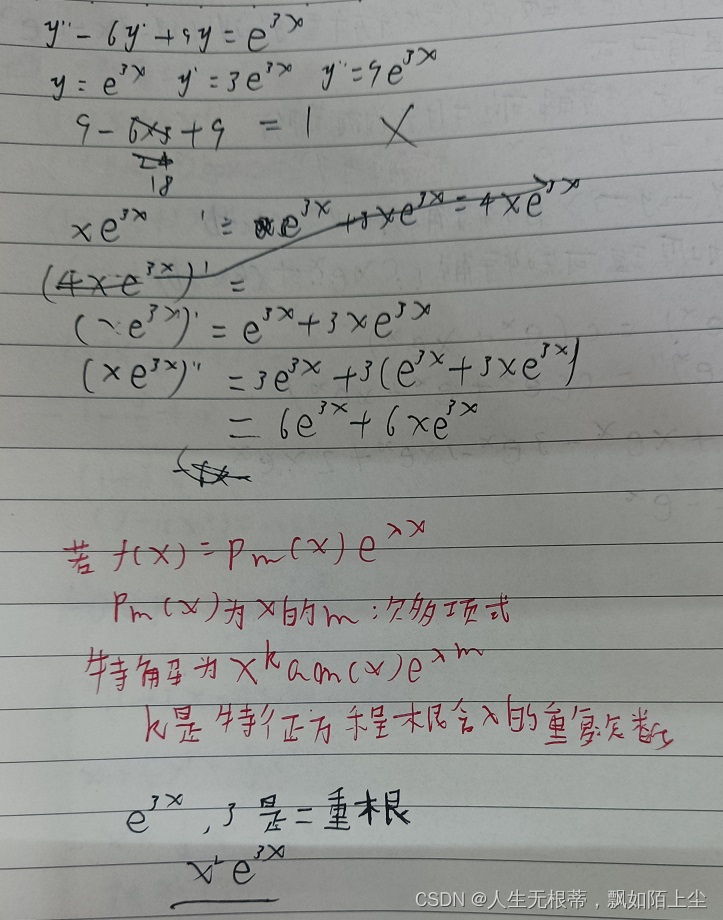 y'' - 6y' + 9y = e^{3x}
y = e^{3x} y' = 3e^{3x} y'' = 9e^{3x}
9 - 6×3 + 9 = 1 ✗
24
18
xe^{3x} ' = xe^{3x} + 3xe^{3x} = 4xe^{3x}
(4xe^{3x})' =
(xe^{3x})' = e^{3x} + 3xe^{3x}
(xe^{3x})'' = 3e^{3x} + 3(e^{3x} + 3xe^{3x})
= 6e^{3x} + 6xe^{3x}
若 f(x) = Pm(x)e^{λx}
Pm(x)为x的m次多项式
特解为 x^k Qm(x)e^{λm}
k是特征方程根含λ的重复次数
e^{3x}, 3是二重根
x²e^{3x}
CSDN @人生无根蒂，飘如陌上尘